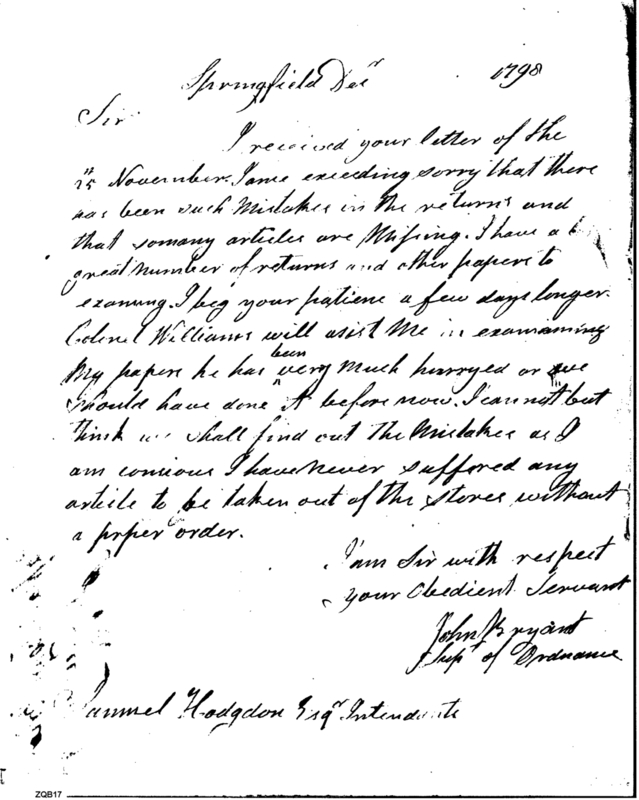 Springfield Decr 1798
Sir
I received your letter of the
25th November. I ame exceeding sorry that there
has been such Mistakes in the returns and
that somany articles are Missing. I have a
great Number of returns and other papers to
examing. I beg your patiene a few days longer.
Colonel Williams will asist Me in examaning
My papers he has been very Much hurryed or we
should have done it before now. I can not but
think we shall find out the Mistakes as I
am concious I have Never suffored any
article to be taken out of the stores without
a prper order.
I am Sir with respect
your Obedient Servant
John Bryant
Supt of Ordnance
Samuel Hodgdon Esqr Intendante
ZQB17